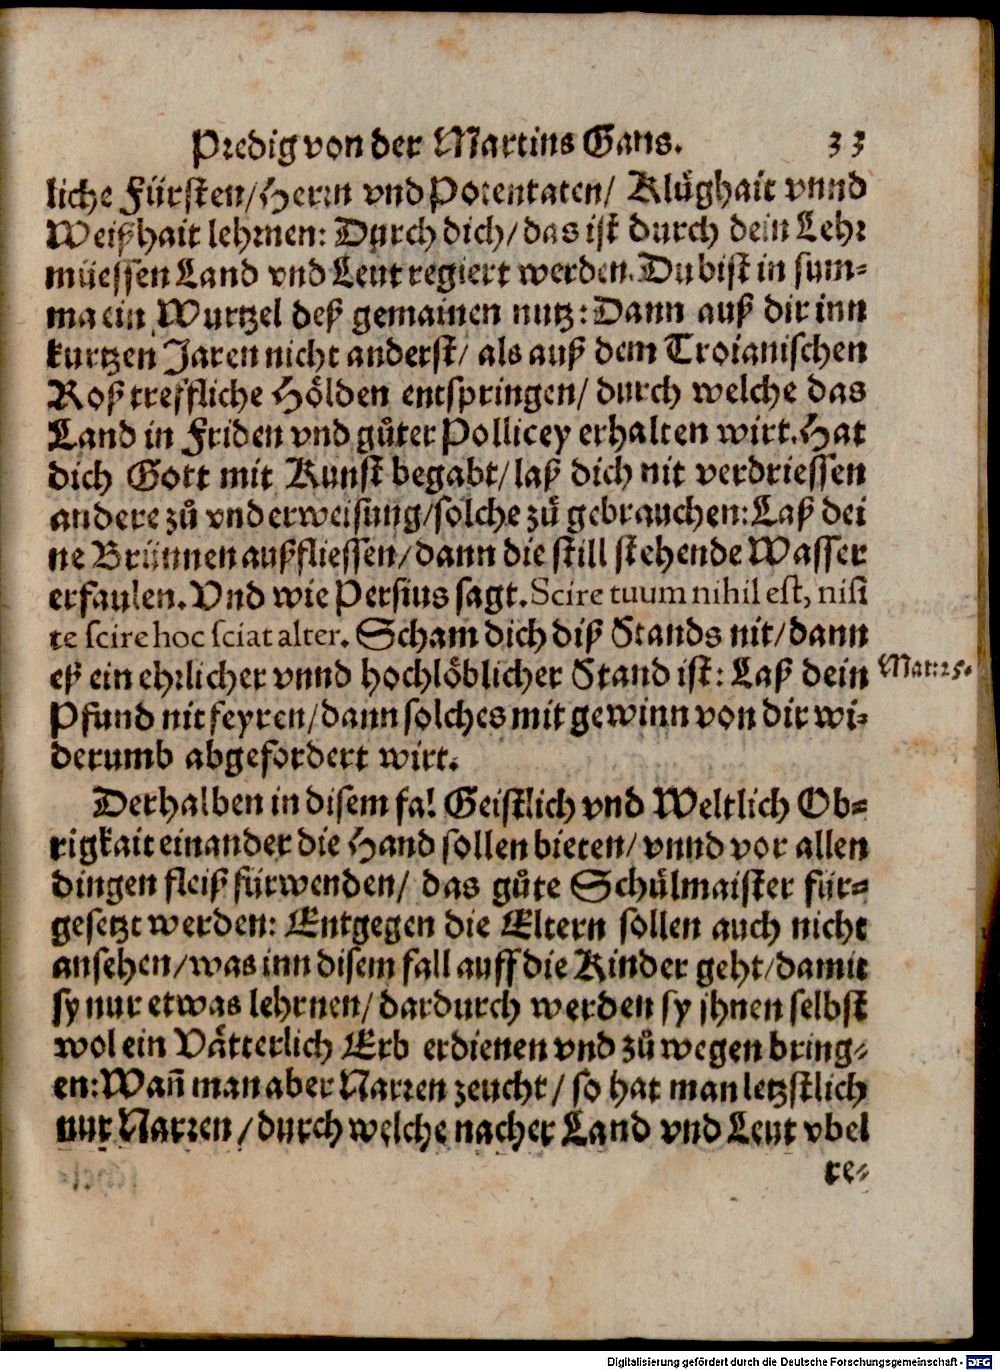 Predig von der Martins Gans. 33
liche Fürsten/Herrn vnd Potentaten/ Klůghait vnnd
Weißhait lehrnen: Durch dich/das ist durch dein Lehr
müessen Land vnd Leut regiert werden. Du bist in sum-
ma ein Wurtzel deß gemainen nutz: Dann auß dir inn
kurtzen Jaren nicht anderst/ als auß dem Troianischen
Roß treffliche Hölden entspringen/ durch welche das
Land in Friden vnd gůter Pollicey erhalten wirt. Hat
dich Gott mit Kunst begabt/laß dich nit verdriessen
andere zů vnderweisung/solche zů gebrauchen: Laß dei
ne Brünnen außfliessen/dann die still stehende Wasser
erfaulen. Vnd wie Persius sagt. Scire tuum nihil est, nisi
te scire hoc sciat alter. Scham dich diß Stands nit/dann
eß ein ehrlicher vnnd hochlöblicher Stand ist: Laß dein
Matt 25.
Pfund nit feyren/dann solches mit gewinn von dir wi-
derumb abgefordert wirt.
Derhalben in disem fal Geistlich vnd Weltlich Ob-
rigkait einander die Hand sollen bieten/ vnnd vor allen
dingen fleiß fürwenden/ das gůte Schůlmaister für-
gesetzt werden: Entgegen die Eltern sollen auch nicht
ansehen/was inn disem fall auff die Kinder geht/damit
sy nur etwas lehrnen/ dardurch werden sy jhnen selbst
wol ein Vätterlich Erb erdienen vnd zů wegen bring-
en: Wañ man aber Narren zeucht/ so hat man letzstlich
nur Narren/durch welche nacher Land vnd Leut vbel
re-
Digitalisierung gefördert durch die Deutsche Forschungsgemeinschaft - DFG